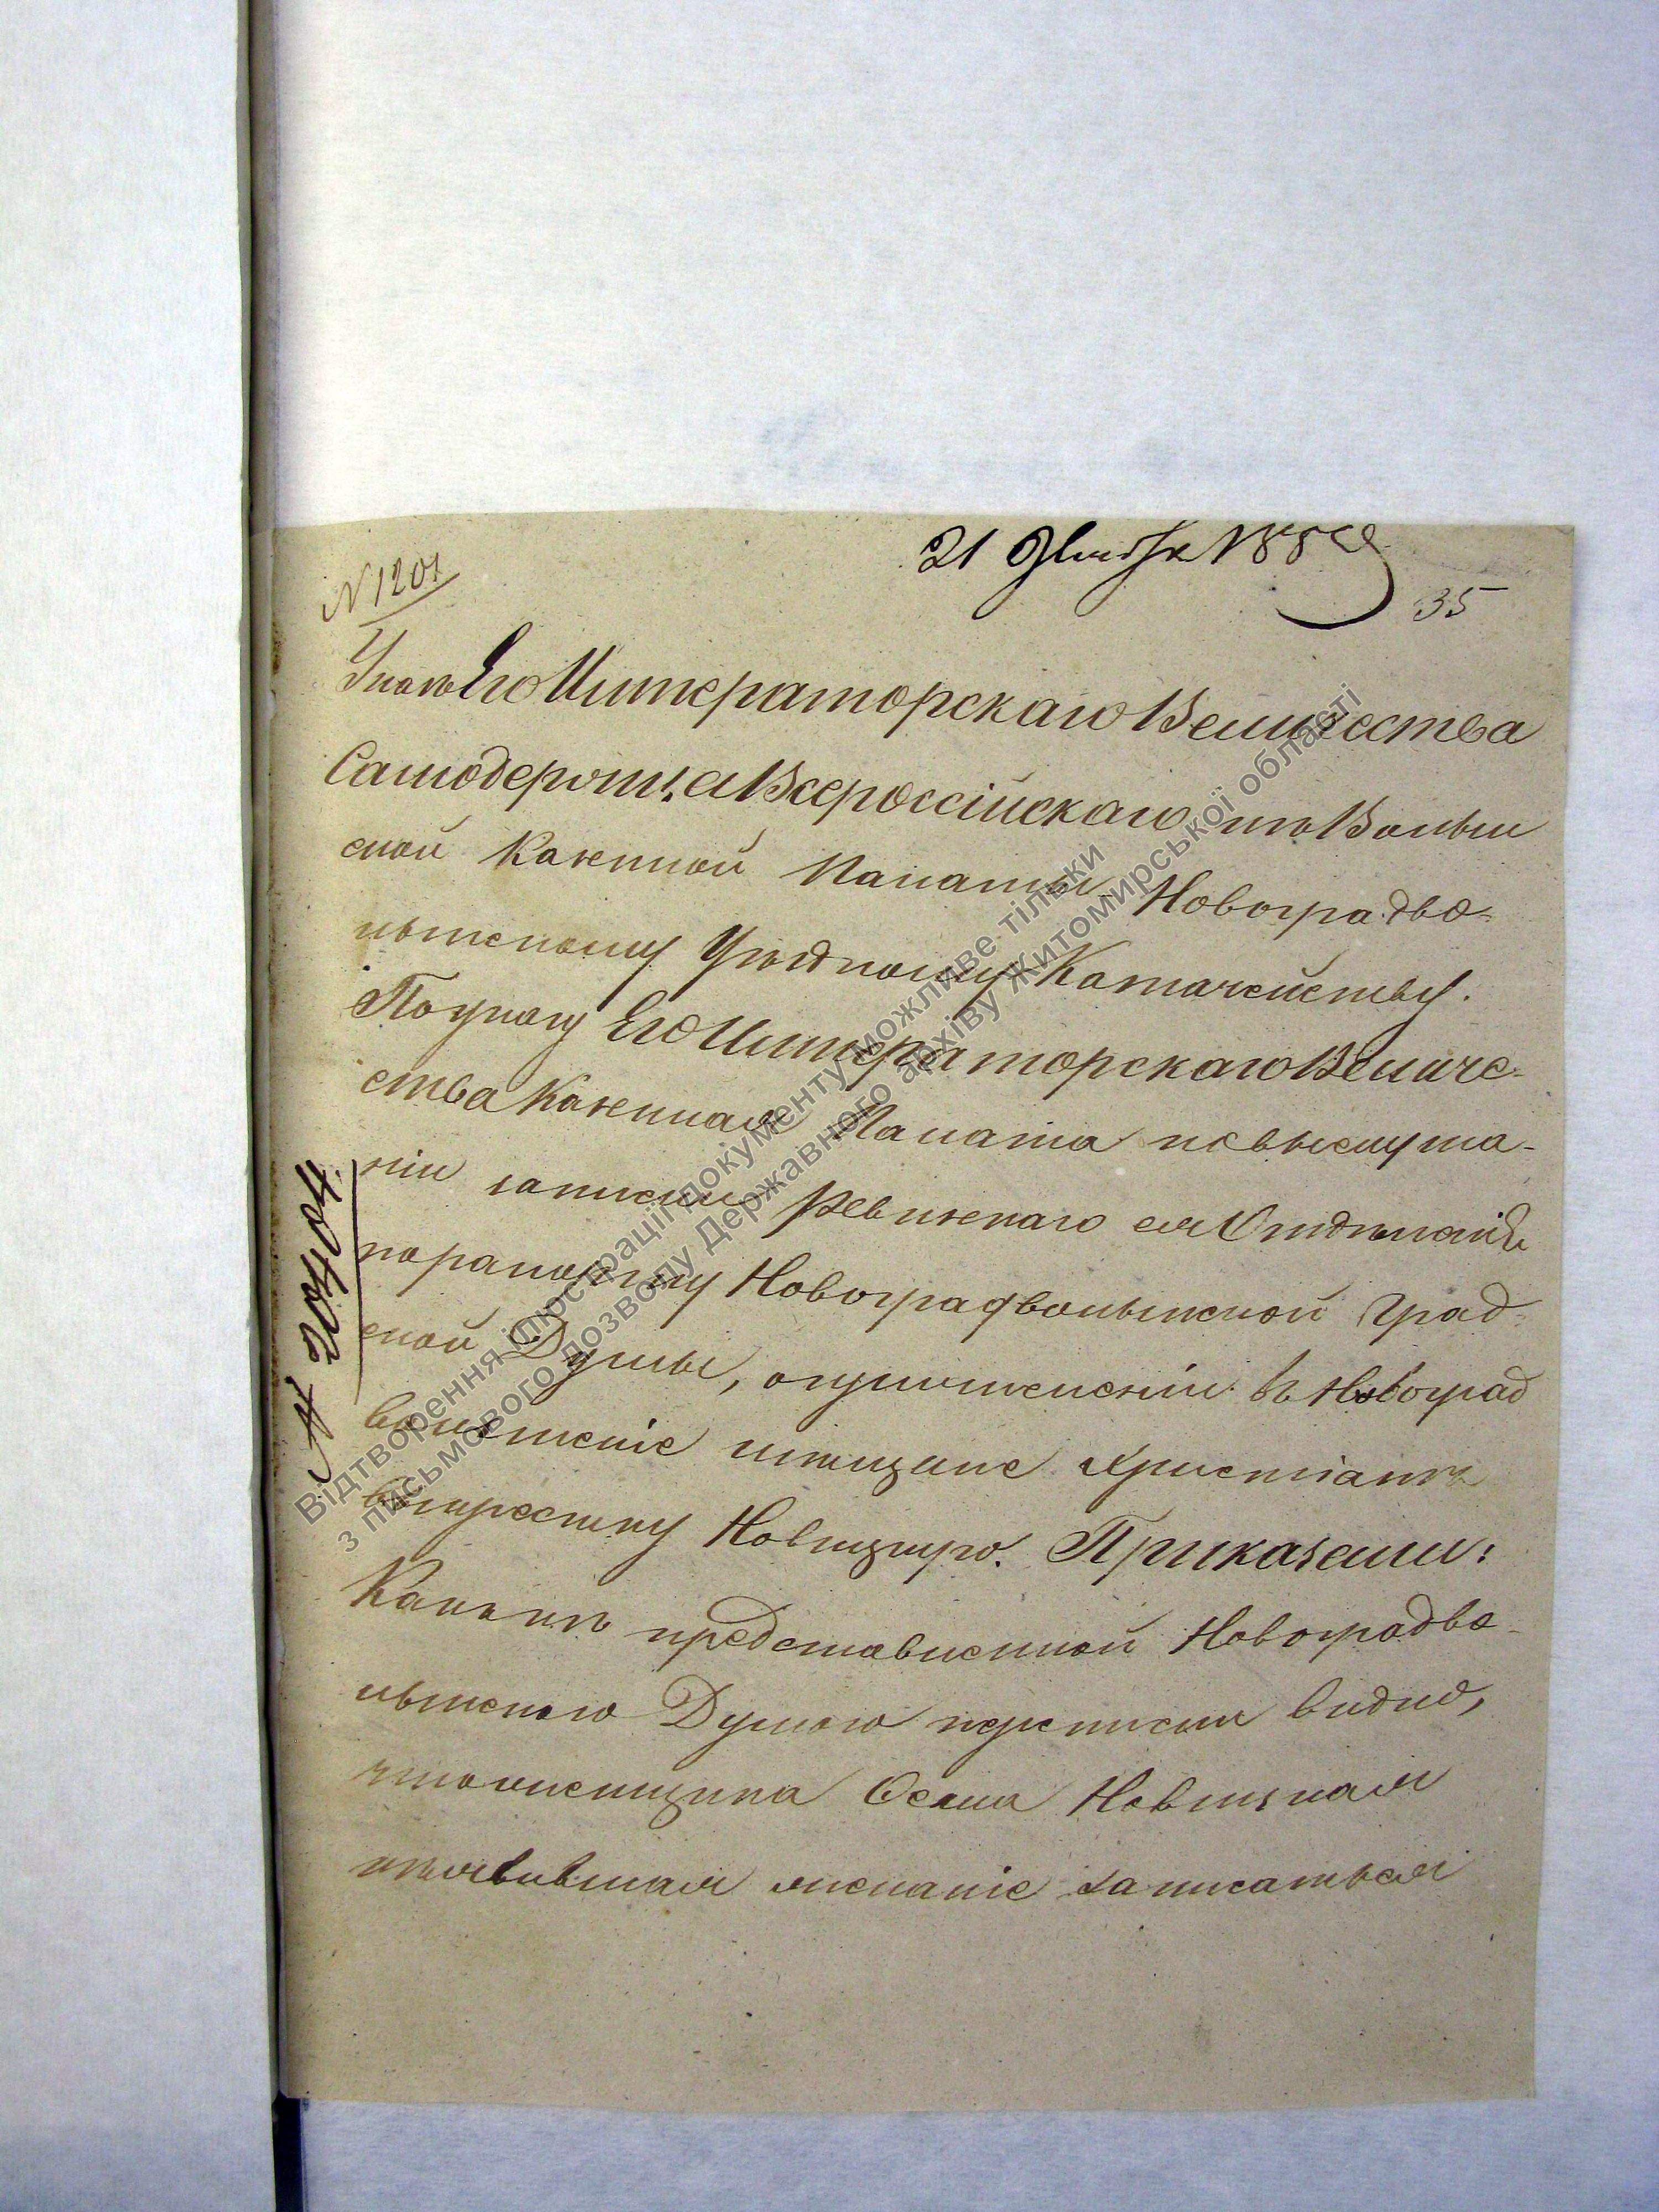 21 1858
№ 1201
35
Указъ Его Императорскаго Величества
Самодержца Всероссійскаго изъ Волын
ской Казенной Палаты Новоградво-
лынскому Уѣздному Казначейству.
По указу Его Императорскаго Величе-
ства Казенная Палата по выслуша-
ніи записки Ревизскаго ея Отдѣленія
по рапорту Новоградволынской Град-
ской Думы, о причисленіи въ Новоград
волынскіе мѣщане Христіанъ
Новицкую. Приказали:
Какъ изъ представленной Новоградво-
лынскою Думою переписки видно,
что женщина Новицкая
изъявившая желаніе записаться
№ 20404
Відтворення ілюстрації документу можливе тільки
з письмового дозволу Державного архіву Житомирської області